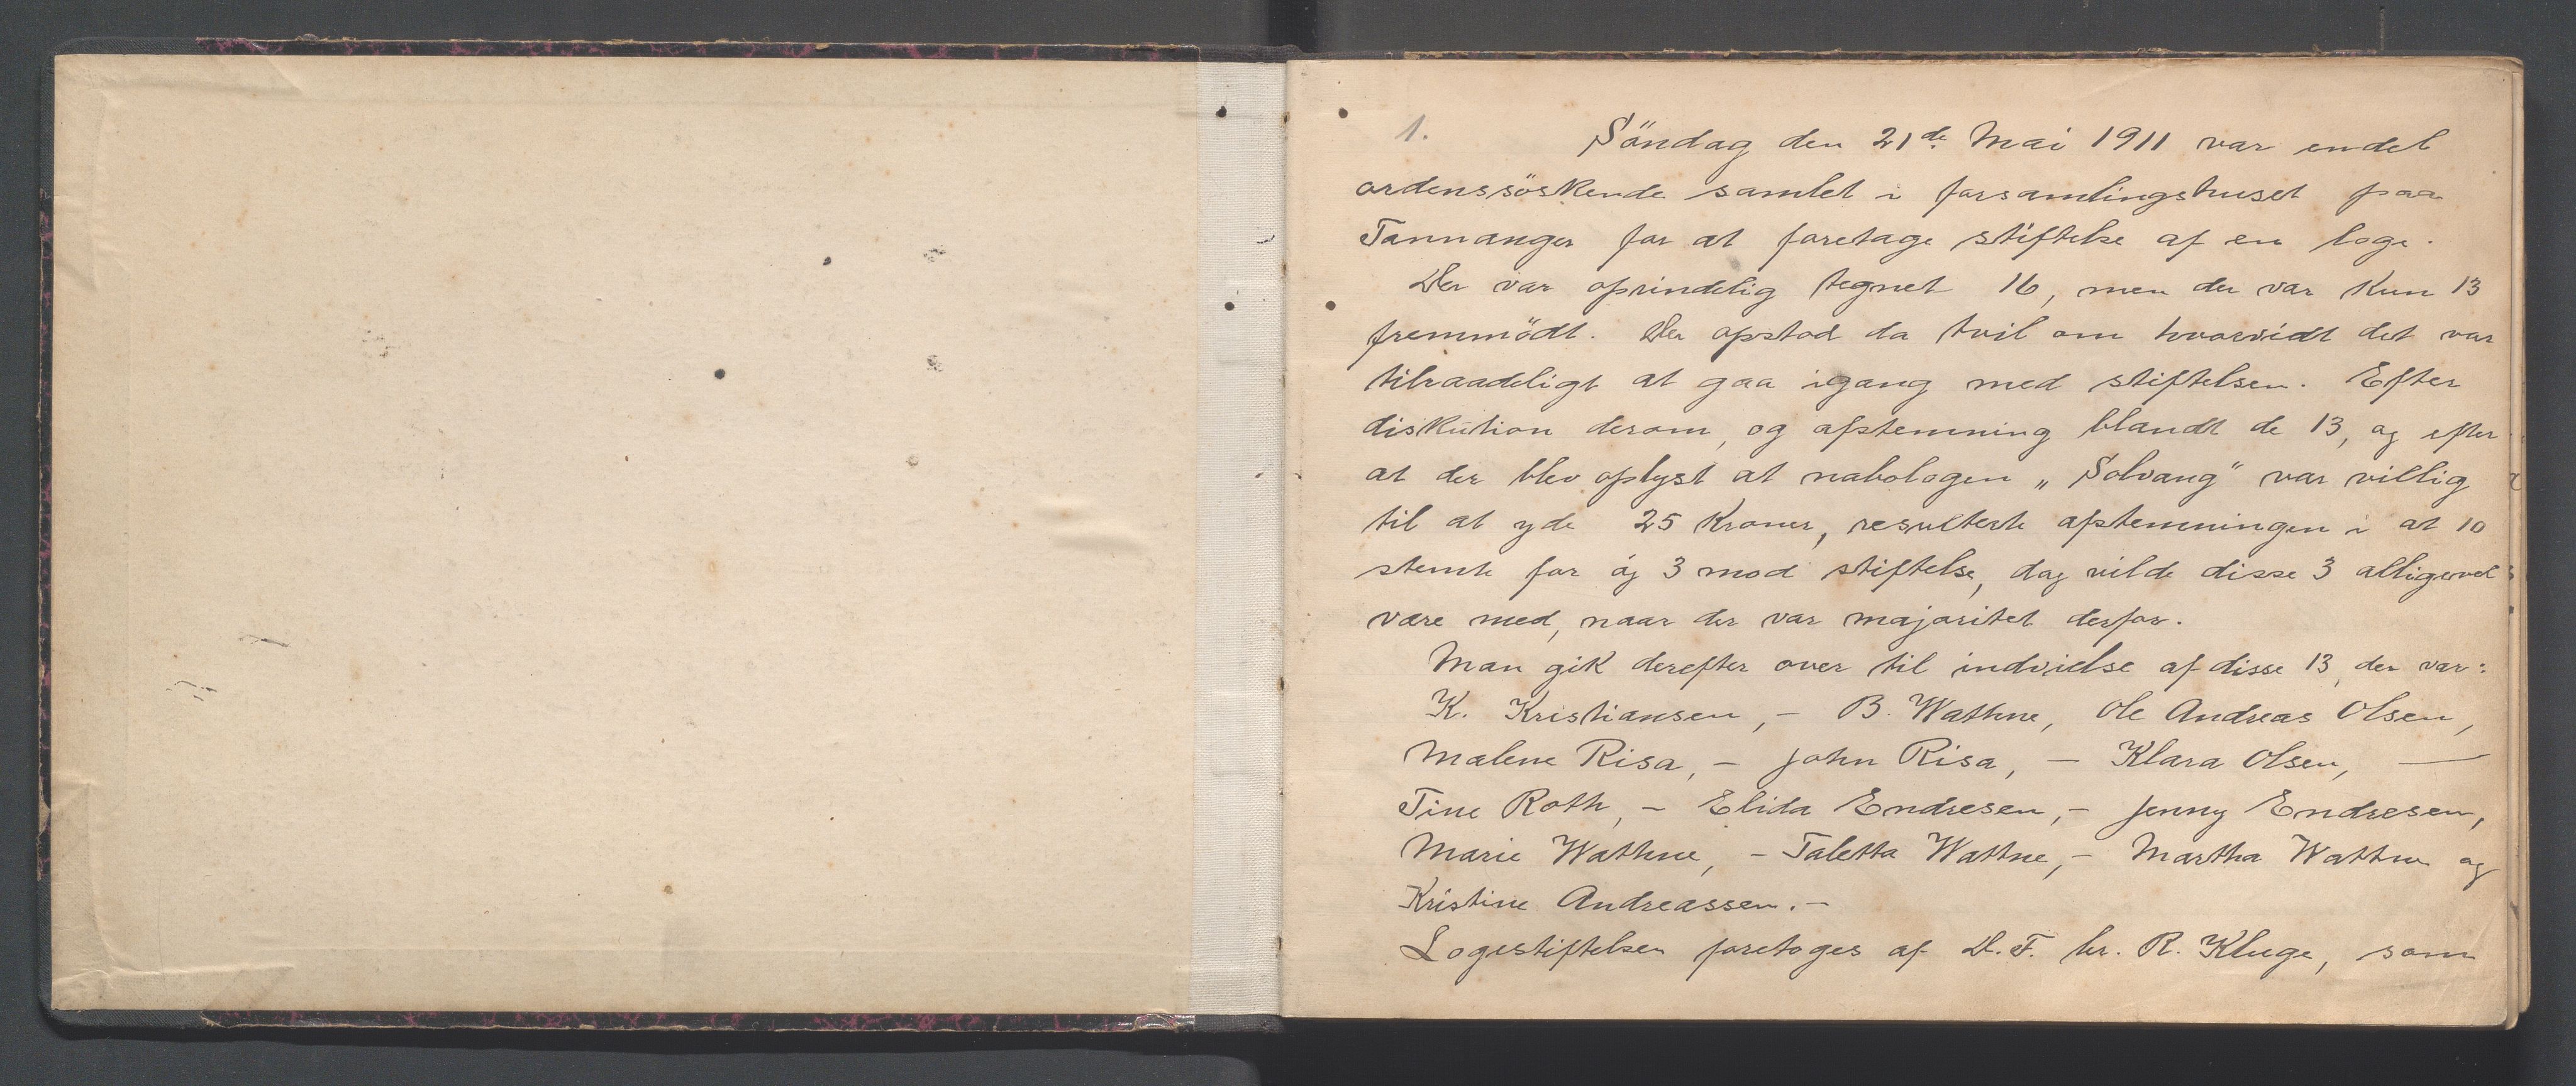 1.
Söndag den 21de Mai 1911 var endel
ordenssöskende samlet i forsamlingshuset paa
Tannanger for at foretage stiftelse af en loge.
Der var oprindelig tegnet 16, men der var kun 13
fremmödt. Der opstod da tvil om hvorvidt det var
tilraadeligt at gaa igang med stiftelsen. Efter
diskution derom, og afstemning blandt de 13, og efter
at der blev oplyst at nabologen „Solvang" var villig
til at yde 25 Kroner, resulterte afstemningen i at 10
stemte for og 3 mod stiftelse, dog vilde disse 3 alligevel
være med, naar der var majoritet derfor.
Man gik derefter over til indvielse af disse 13, der var:
K. Kristiansen, - B. Wathne, Ole Andreas Olsen,
Malene Risa, - John Risa, - Klara Olsen, —
Tine Roth, - Elida Endresen, - Jenny Endresen,
Marie Wathne, - Taletta Wattne, - Martha Wattne og
Kristine Andreassen. -
Logestiftelsen foretoges af D.F. br. R. Kluge, som